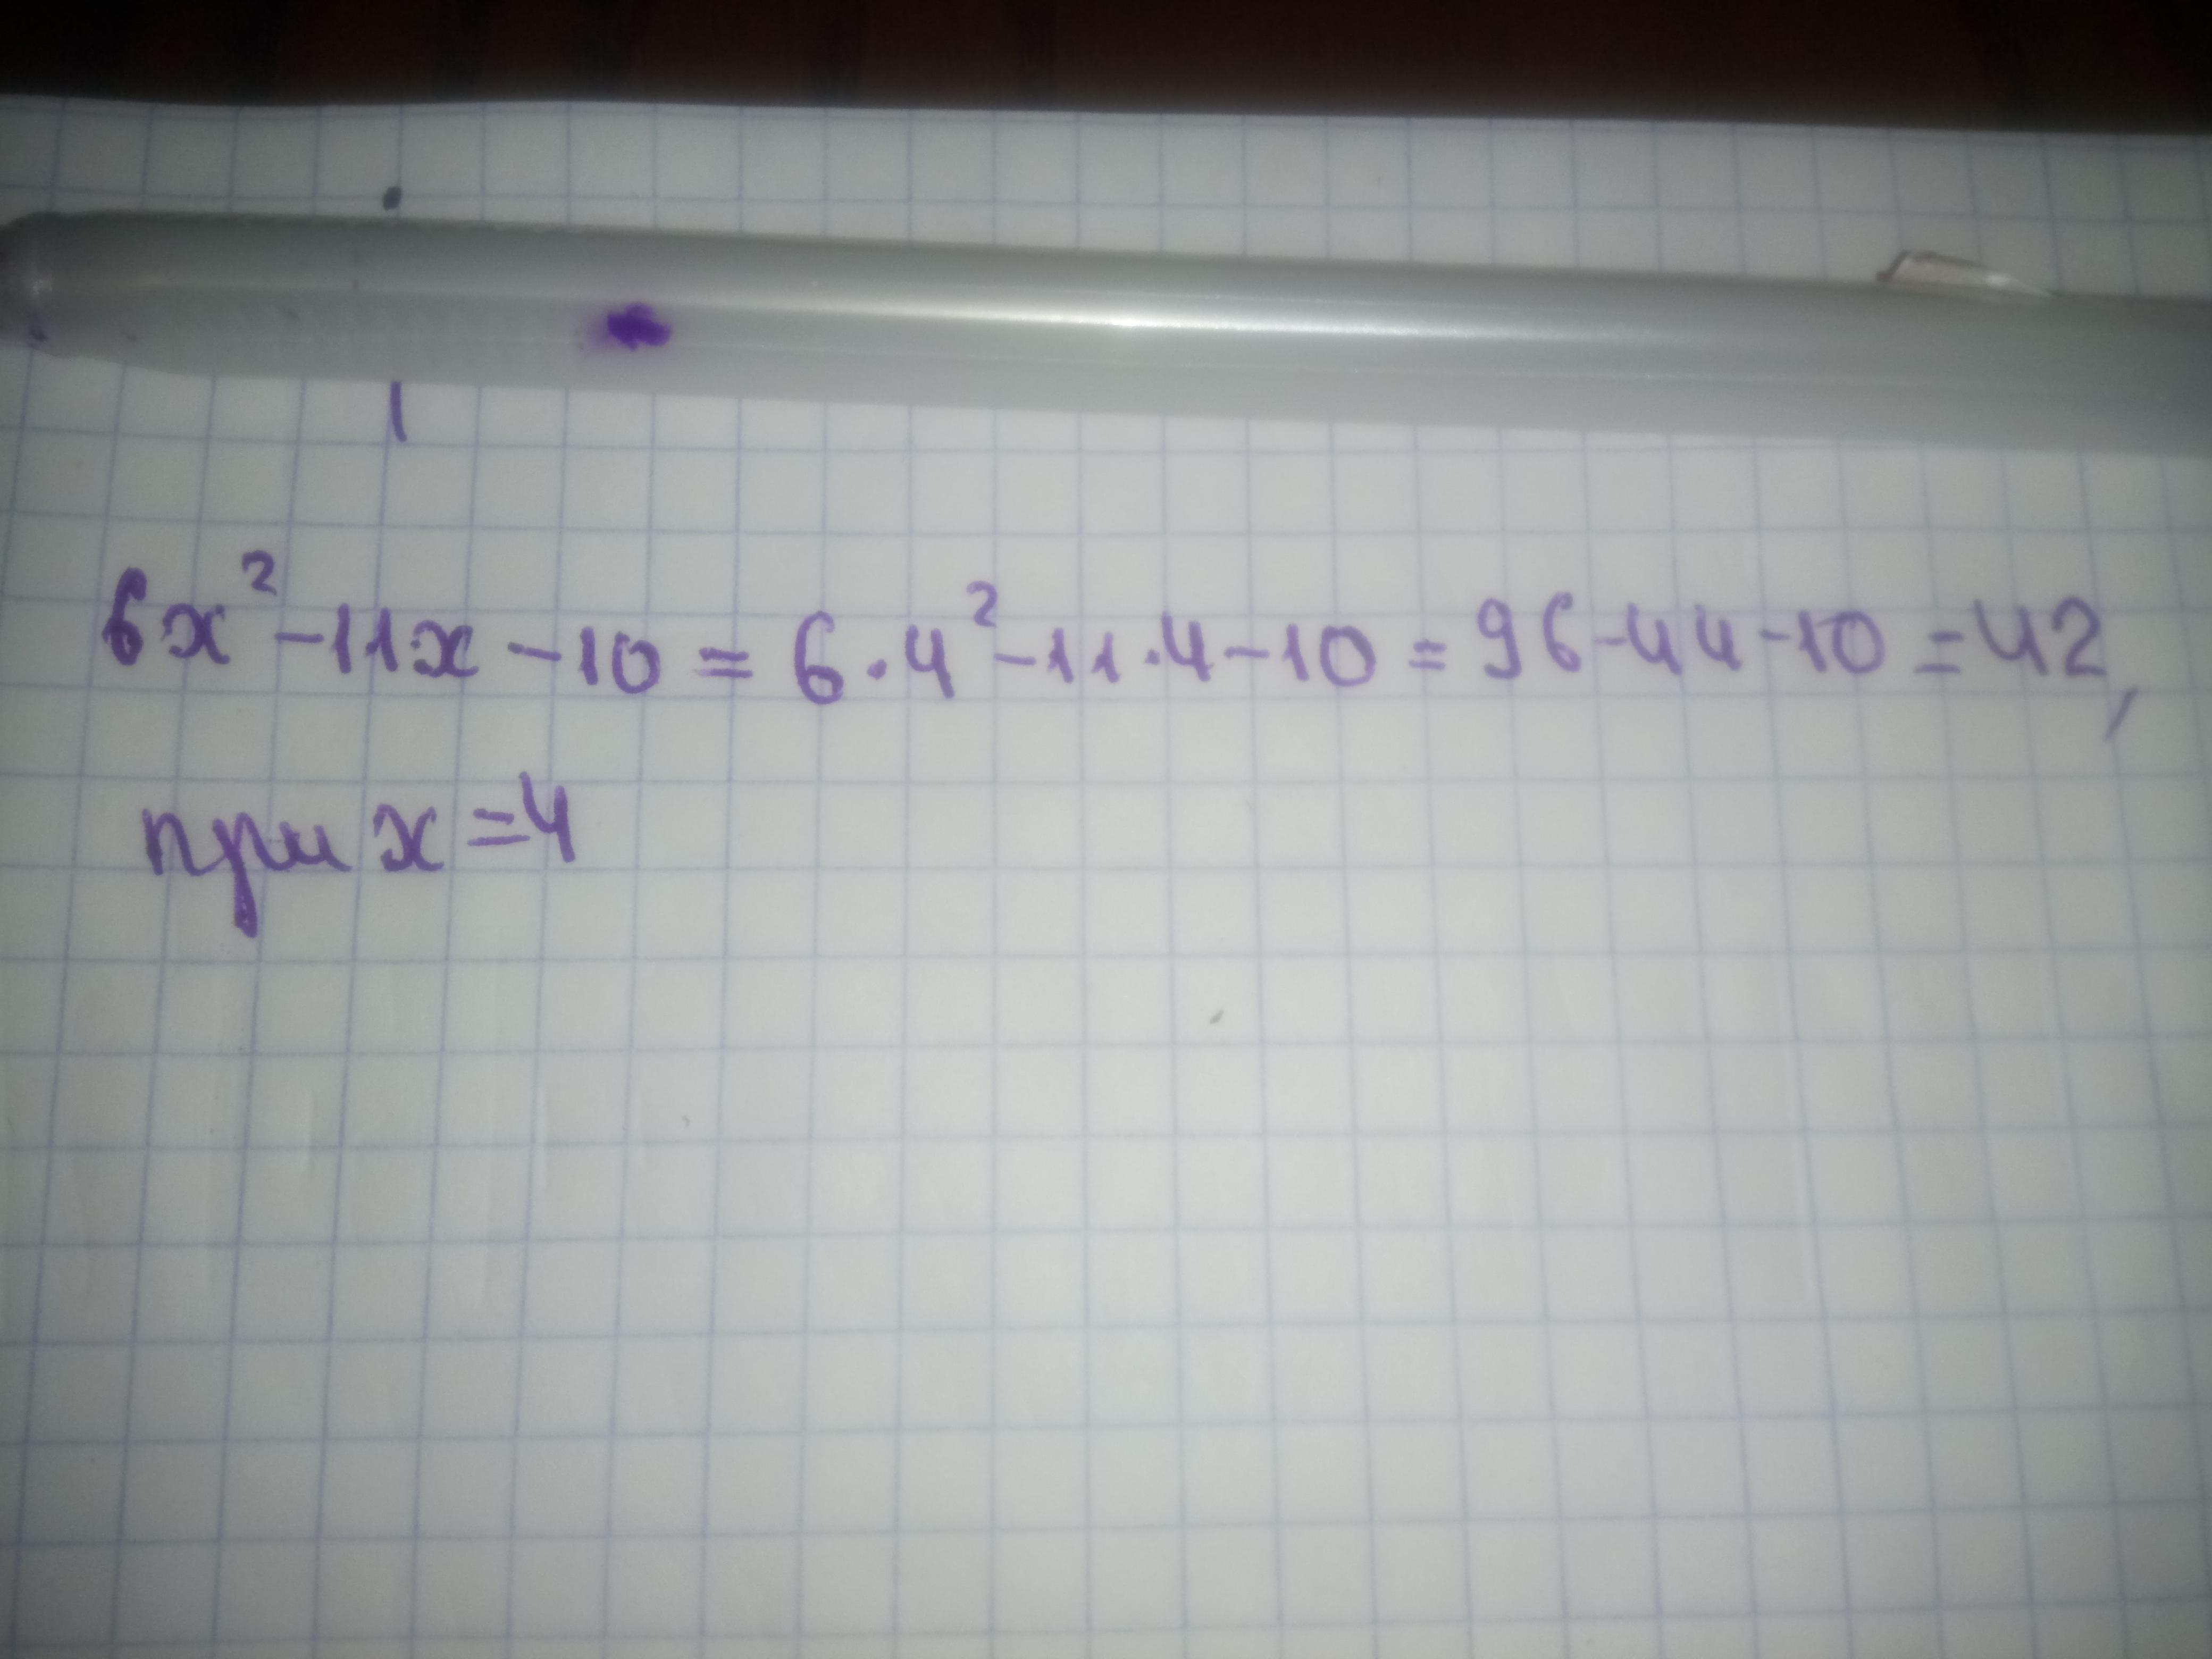 6x² -11x -10 = 6·4² -11·4 -10 = 96-44-10 = 42,
при x = 4